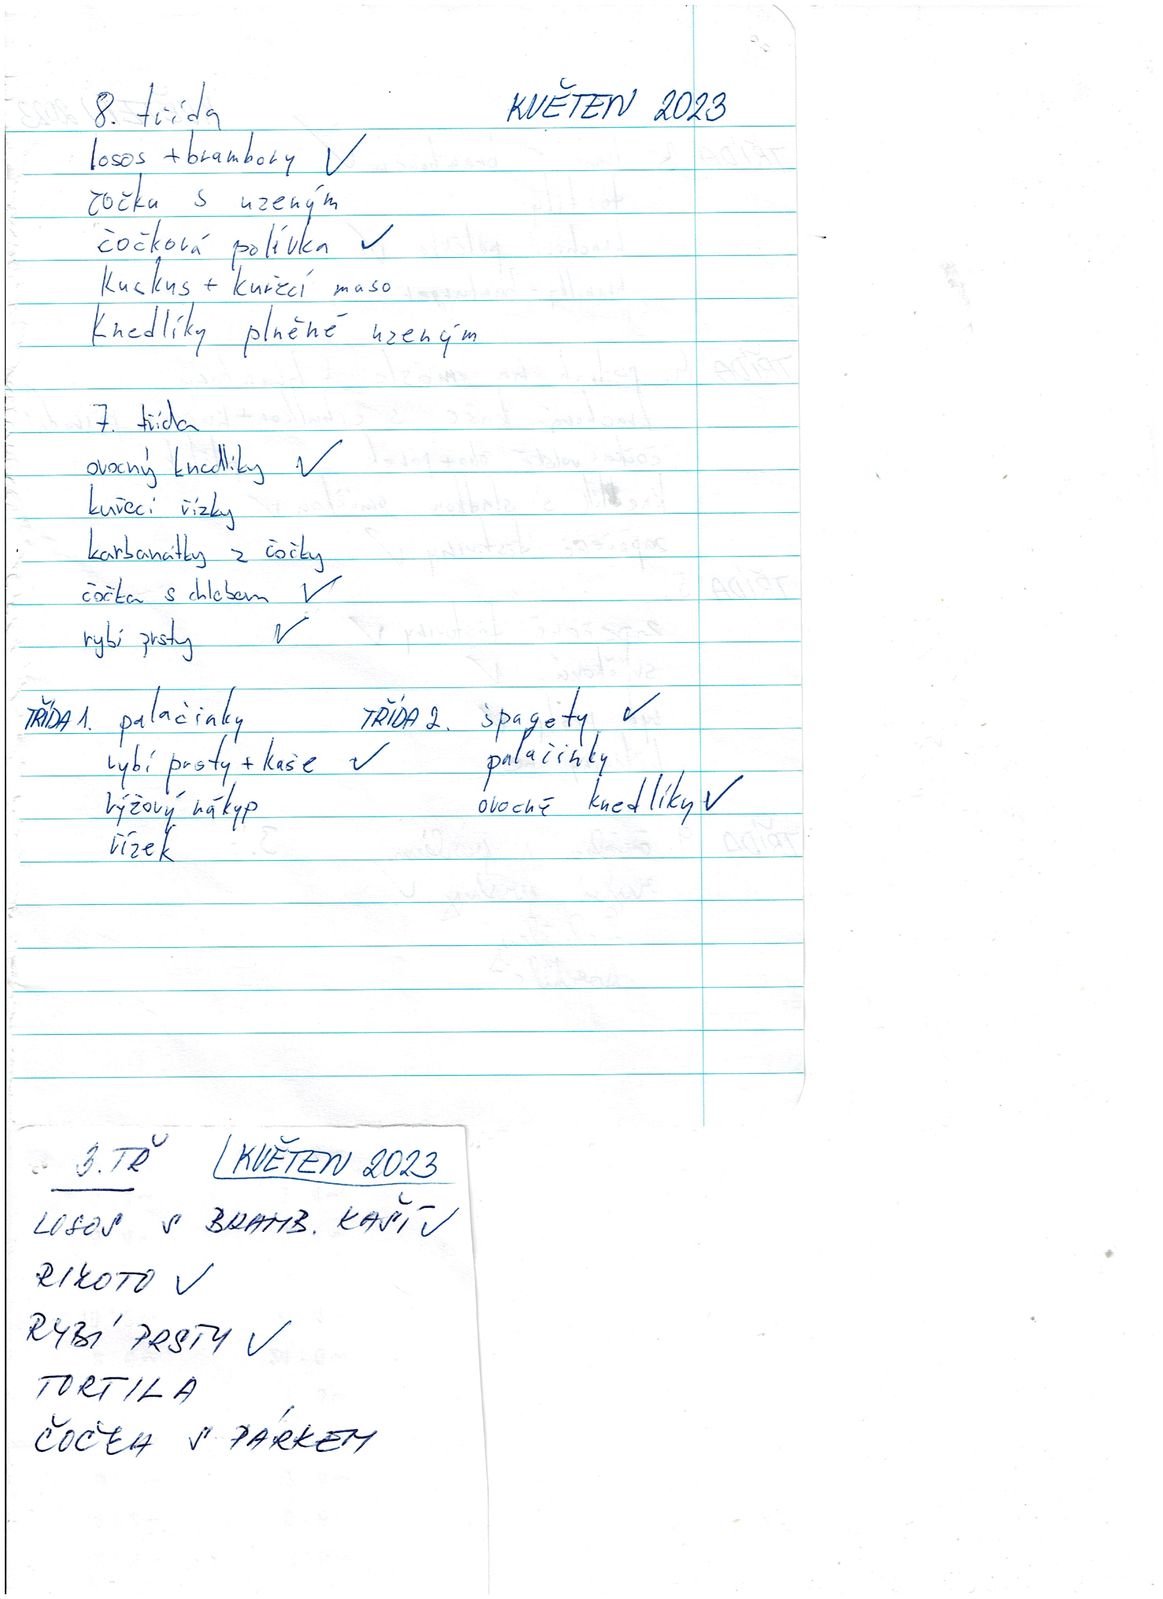 8. třída KVĚTEN 2023
losos + brambory ✓
čočku s uzeným
čočková polívka ✓
kuskus + kuřecí maso
knedlíky plněné uzeným
7. třída
ovocný knedlíky ✓
kuřecí řízky
karbanátky z čočky
čočka s chlebem ✓
rybí prsty ✓
TŘÍDA 1. palačinky TŘÍDA 2. špagety ✓
rybí prsty + kaše ✓ palačinky
rýžový nákyp ovocné knedlíky ✓
řízek
3. TŘ KVĚTEN 2023
LOSOS S BRAMB. KAŠÍ ✓
RIZOTO ✓
RYBÍ PRSTY ✓
TORTILA
ČOČKA S PÁRKEM